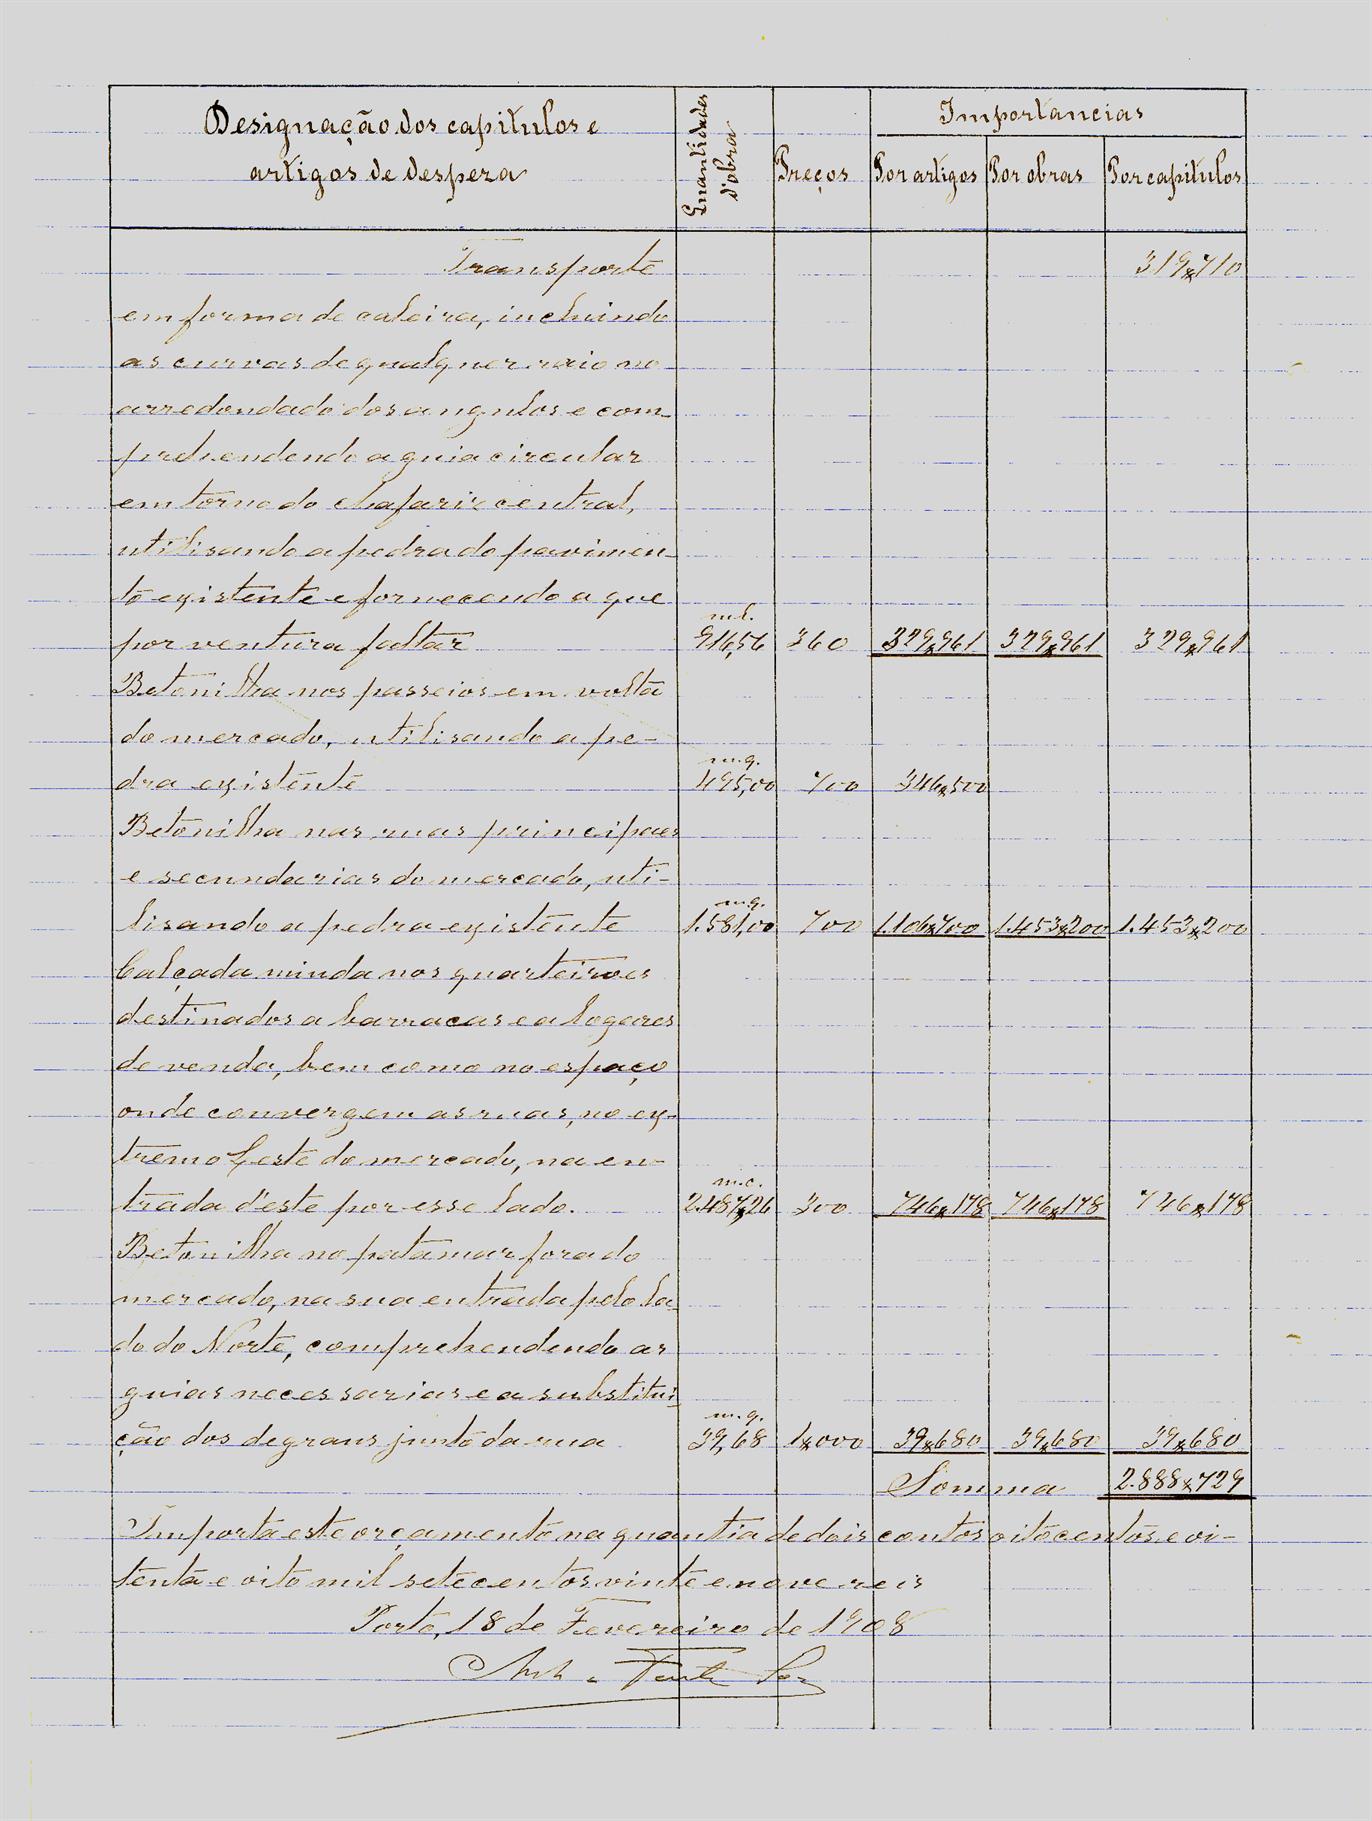 Designação dos capitulos e
artigos de despeza
Quantidades
d'obra
Preços
Importancias
Por artigos
Por obras
Por capitulos
Transporte 319$710
em forma de caleira, incluindo
as curvas de qualquer raio no
arredondado dos angulos e com-
prehendendo a guia circular
em torno do chafariz central,
utilisando a pedra do pavimen-
to existente e fornecendo a que
m.l.
por ventura faltar 916,56 360 329$961 329$961 329$961
Betonilha nos passeios em volta
do mercado, utilisando a pe-
m.q.
dra existente 495,00 700 346$500
Betonilha nas ruas principaes
e secundarias do mercado, uti-
m.q.
lisando a pedra existente 1.581,00 700 1.106$700 1.453$200 1.453$200
Calçada miuda nos quarteirões
destinados a barracas e a logares
de venda, bem como no espaço
onde convergem as ruas, no ex-
tremo Leste do mercado, na en-
m.c.
trada d'este por esse lado. 2.487,26 300 746$178 746$178 746$178
Betonilha no patamar fora do
mercado, na sua entrada pelo la-
do do Norte, comprehendendo as
guias necessarias e a substitui-
m.q.
ção dos degraus junto da rua 39,68 1$000 39$680 39$680 39$680
Somma 2.888$729
Importa este orçamento na quantia de dois contos oitocentos e oi-
tenta e oito mil setecentos vinte e nove reis
Porto, 18 de Fevereiro de 1908